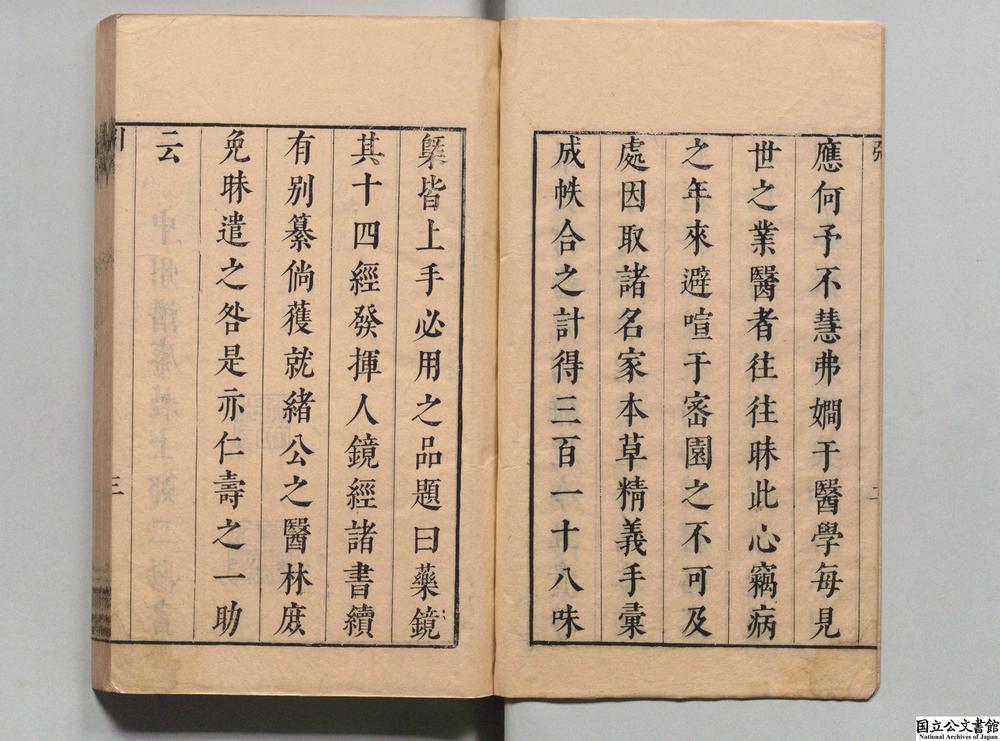 應何予不慧弗嫺于醫學每見
世之業醫者往往昧此心竊病
之年來避喧于宻園之不可及
處因取諸名家本草精義手彙
成帙合之計得三百一十八味
槩皆上手必用之品題曰藥鏡
其十四經發揮人鏡經諸書續
有別纂倘獲就緒公之醫林庶
免昧遣之咎是亦仁壽之一助
云
引
三
国立公文書館
National Archives of Japan